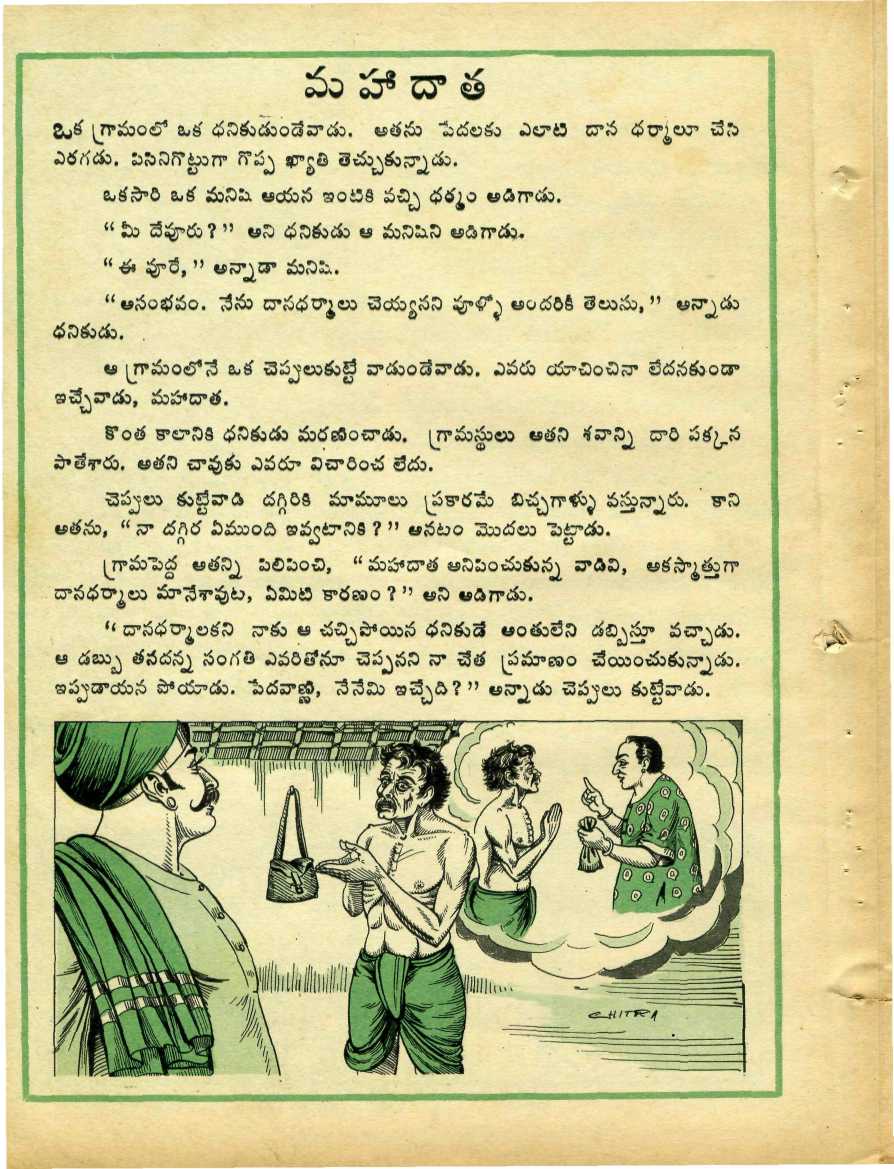 మహాదాత
ఒక గ్రామంలో ఒక ధనికుడుండేవాడు. అతను పేదలకు ఎలాటి దాన ధర్మాలూ చేసి
ఎరగడు. పిసినిగొట్టుగా గొప్ప ఖ్యాతి తెచ్చుకున్నాడు.
ఒకసారి ఒక మనిషి ఆయన ఇంటికి వచ్చి ధర్మం అడిగాడు.
“మీ దేవూరు?” అని ధనికుడు ఆ మనిషిని అడిగాడు.
“ఈ వూరే,” అన్నాడా మనిషి.
“అసంభవం. నేను దానధర్మాలు చెయ్యనని వూళ్ళో అందరికీ తెలుసు,” అన్నాడు
ధనికుడు.
ఆ గ్రామంలోనే ఒక చెప్పులుకుట్టే వాడుండేవాడు. ఎవరు యాచించినా లేదనకుండా
ఇచ్చేవాడు, మహాదాత.
కొంత కాలానికి ధనికుడు మరణించాడు. గ్రామస్థులు అతని శవాన్ని దారి పక్కన
పాతేశారు. అతని చావుకు ఎవరూ విచారించ లేదు.
చెప్పులు కుట్టేవాడి దగ్గిరికి మామూలు ప్రకారమే బిచ్చగాళ్ళు వస్తున్నారు. కాని
అతను, “నా దగ్గిర ఏముంది ఇవ్వటానికి?” అనటం మొదలు పెట్టాడు.
గ్రామపెద్ద అతన్ని పిలిపించి, “మహాదాత అనిపించుకున్న వాడివి, అకస్మాత్తుగా
దానధర్మాలు మానేశావుట, ఏమిటి కారణం?” అని అడిగాడు.
“దానధర్మాలకని నాకు ఆ చచ్చిపోయిన ధనికుడే అంతులేని డబ్బిస్తూ వచ్చాడు.
ఆ డబ్బు తనదన్న సంగతి ఎవరితోనూ చెప్పనని నా చేత ప్రమాణం చేయించుకున్నాడు.
ఇప్పుడాయన పోయాడు. పేదవాణ్ణి, నేనేమి ఇచ్చేది?” అన్నాడు చెప్పులు కుట్టేవాడు.
CHITRA